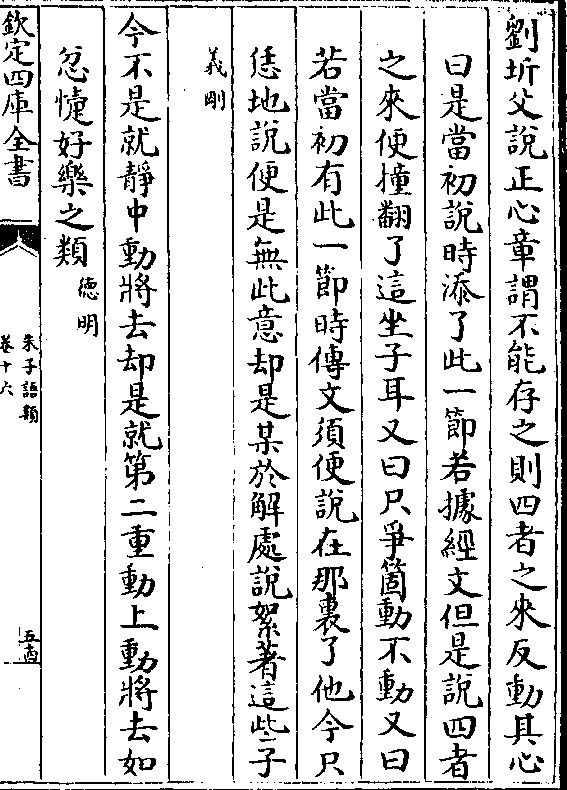 劉圻父說正心章謂不能存之則四者之來反動其心
曰是當初說時添了此一節若據經文但是說四者
之來便撞翻了這坐子耳又曰只爭箇動不動又曰
若當初有此一節時傳文須便說在那裏了他今只
恁地說便是無此意却是某於解處說絮著這些子
義剛
今不是就靜中動將去却是就第二重動上動將去如
忿懥好樂之類德明
欽定四庫全書
朱子語類
卷十六
五十四